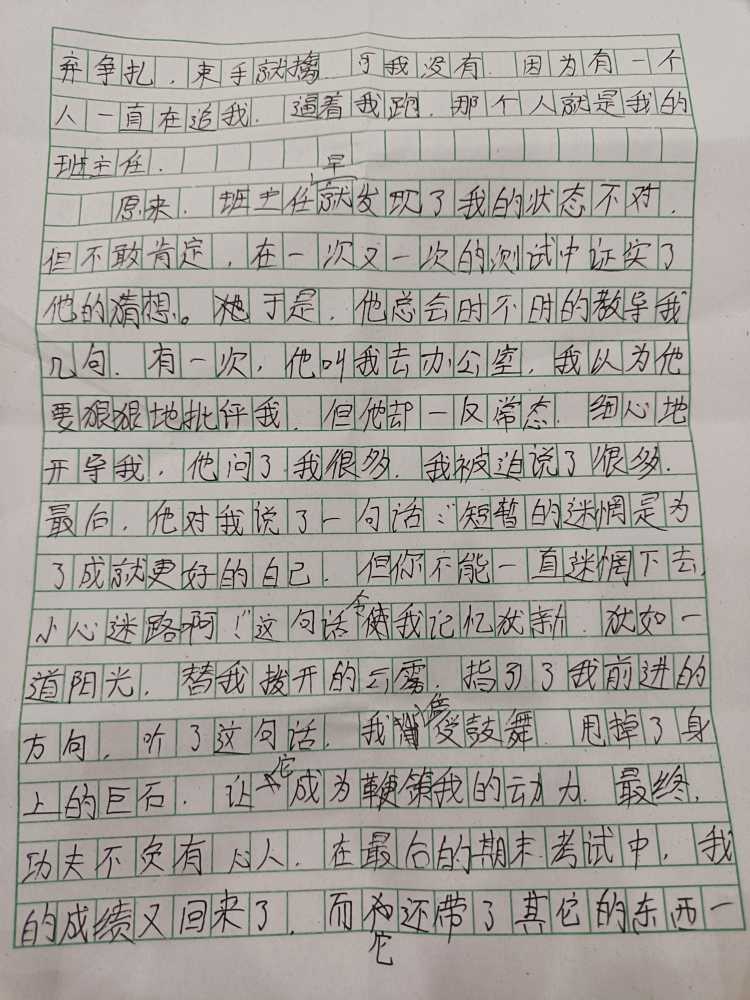 弃争扎，束手就擒，可我没有，因为有一个
人一直在追我，逼着我跑，那个人就是我的
班主任。
原来，班主任早就发现了我的状态不对，
但不敢肯定，在一次又一次的测试中证实了
他的猜想。于是，他总会时不时的教导我
几句，有一次，他叫我去办公室，我以为他
要狠狠地批评我，但他却一反常态，细心地
开导我，他问了我很多，我被迫说了很多，
最后，他对我说了一句话：“短暂的迷惘是为
了成就更好的自己，但你不能一直迷惘下去，
小心迷路啊！”这句话令我记忆犹新，犹如一
道阳光，替我拨开的云雾，指引了我前进的
方向，听了这句话，我倍受鼓舞，甩掉了身
上的巨石，让它成为鞭策我的动力，最终，
功夫不负有心人，在最后的期末考试中，我
的成绩又回来了，而它还带了其它的东西一